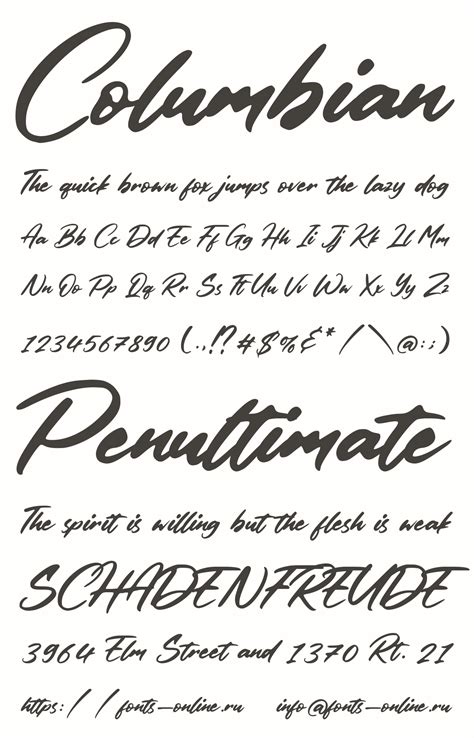 Columbian
The quick brown fox jumps over the lazy dog
Aa Bb Cc Dd Ee Ff Gg Hh Ii Jj Kk Ll Mm
Nn Oo Pp Qq Rr Ss Tt Uu Vv Ww Xx Yy Zz
1234567890 (.,!? #$%&* / \ @:;)
Penultimate
The spirit is willing but the flesh is weak
SCHADENFREUDE
3964 Elm Street and 1370 Rt. 21
https: / / fonts-online.ru info@fonts-online.ru